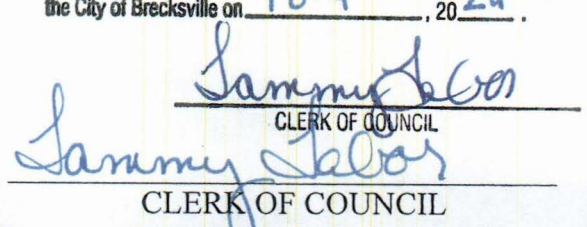 the City of Brecksville on , 20 .
Tammy Tabor
CLERK OF COUNCIL
Tammy Tabor
CLERK OF COUNCIL